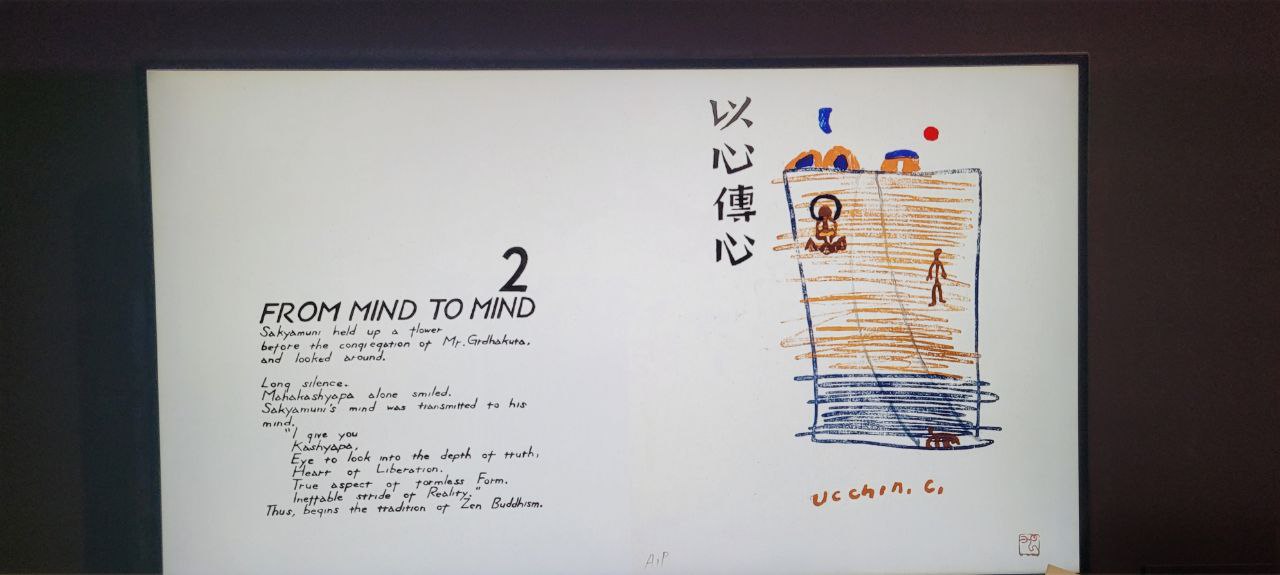 2
FROM MIND TO MIND
Sakyamuni held up a flower
before the congregation of Mr. Grdhakuta,
and looked around.
Long silence.
Mahakashyapa alone smiled.
Sakyamuni's mind was transmitted to his
mind.
"I give you
Kashyapa.
Eye to look into the depth of truth,
Heart of Liberation.
True aspect of formless Form.
Ineffable stride of Reality."
Thus, begins the tradition of Zen Buddhism.
以心傳心
ucchin. c.
A.P